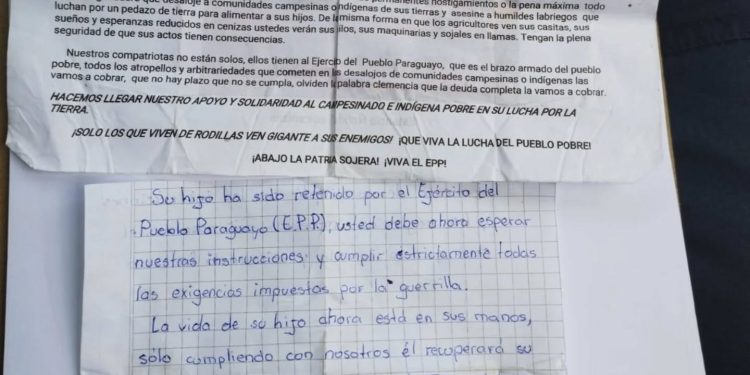 desaloje a comunidades campesinas o indígenas de sus tierras y asesine a humildes labriegos que
luchan por un pedazo de tierra para alimentar a sus hijos. De la misma forma en que los agricultores ven sus casitas, sus
sueños y esperanzas reducidos en cenizas ustedes verán sus silos, sus maquinarias y sojales en llamas. Tengan la plena
seguridad de que sus actos tienen consecuencias.
Nuestros compatriotas no están solos, ellos tienen al Ejercito del Pueblo Paraguayo, que es el brazo armado del pueblo
pobre, todos los atropellos y arbitrariedades que cometen en los desalojos de comunidades campesinas o indígenas las
vamos a cobrar, que no hay plazo que no se cumpla, olviden la palabra clemencia que la deuda completa la vamos a cobrar.
HACEMOS LLEGAR NUESTRO APOYO Y SOLIDARIDAD AL CAMPESINADO E INDÍGENA POBRE EN SU LUCHA POR LA
TIERRA.
¡SOLO LOS QUE VIVEN DE RODILLAS VEN GIGANTE A SUS ENEMIGOS! ¡QUE VIVA LA LUCHA DEL PUEBLO POBRE!
¡ABAJO LA PATRIA SOJERA! ¡VIVA EL EPP!
Su hijo ha sido retenido por el Ejército del
Pueblo Paraguayo (E.P.P.), usted debe ahora esperar
nuestras instrucciones y cumplir estrictamente todas
las exigencias impuestas por la guerrilla.
La vida de su hijo ahora está en sus manos,
sólo cumpliendo con nosotros él recuperará su